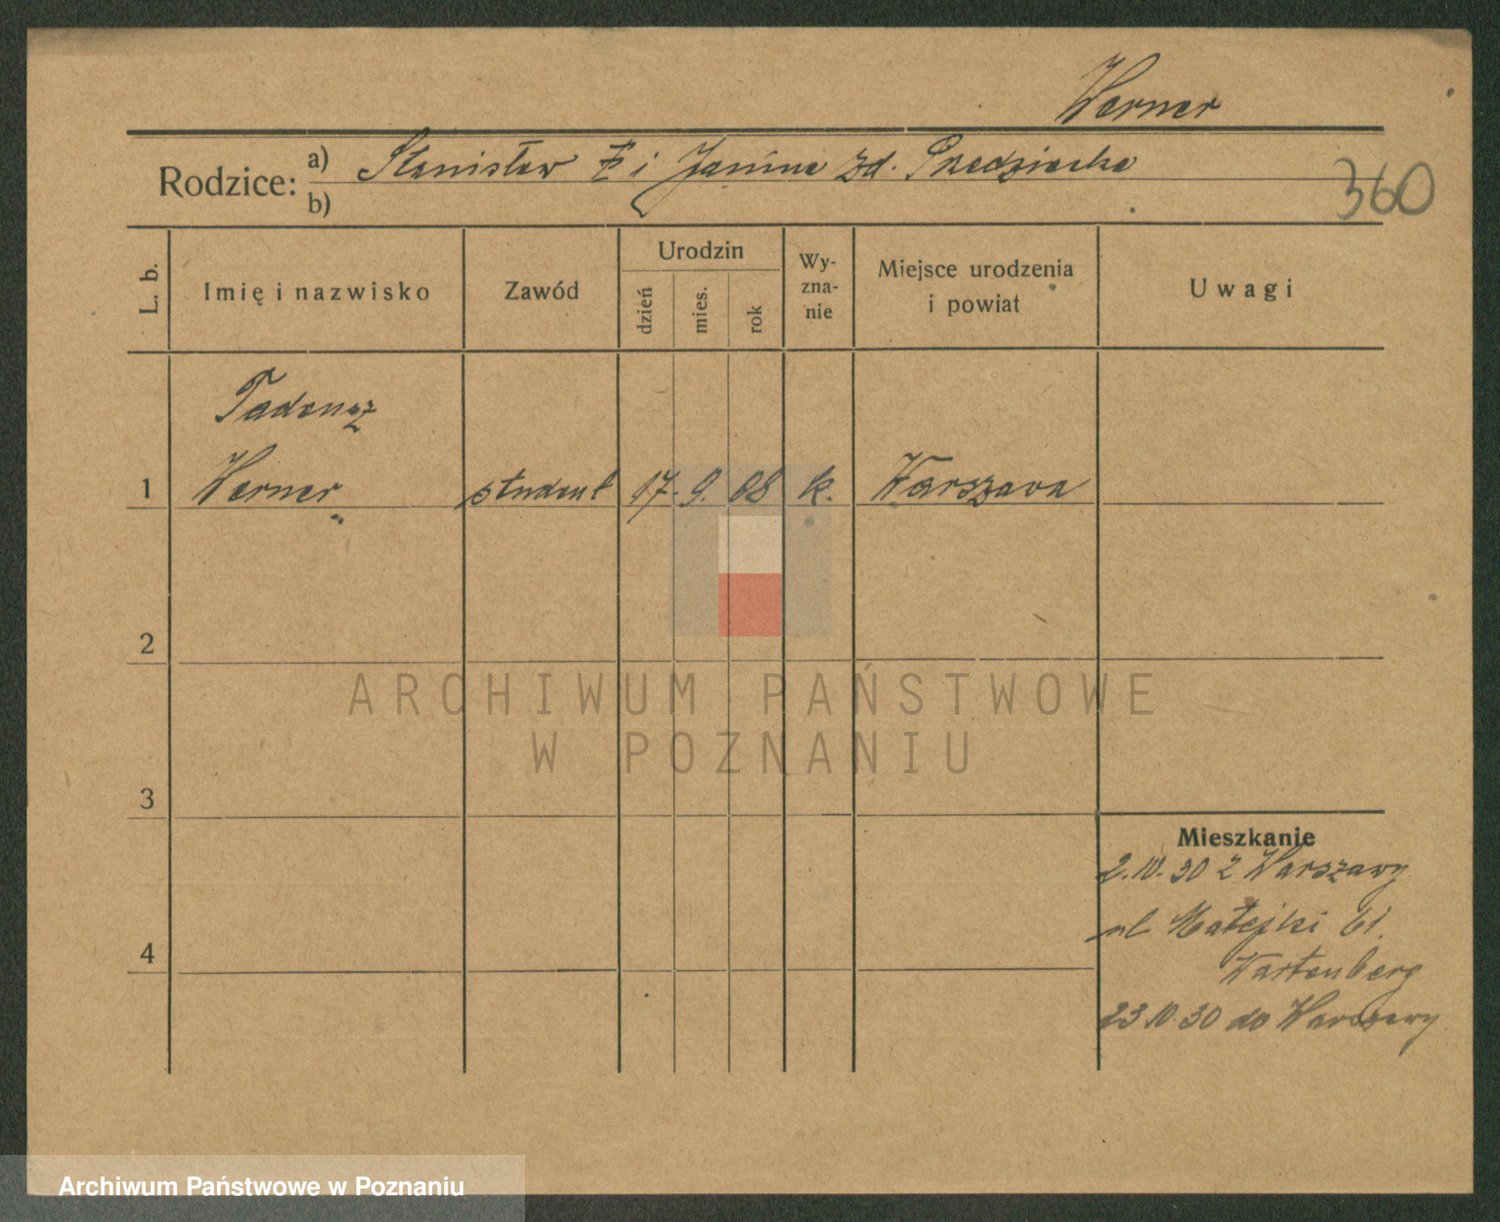 Werner
Rodzice: a) Stanisław i Janina zd.
b)
360
L. b. Imię i nazwisko Zawód Urodzin dzień mies. rok Wy-zna-nie Miejsce urodzenia i powiat Uwagi
Tadeusz
1 Werner student 17. 9. 08 k. Warszawa
2
ARCHIWUM PAŃSTWOWE
W POZNANIU
3
Mieszkanie
2.10.30 z Warszawy
ul Matejki 61.
4
Wartenberg
23.10.30 do Warszawy
Archiwum Państwowe w Poznaniu